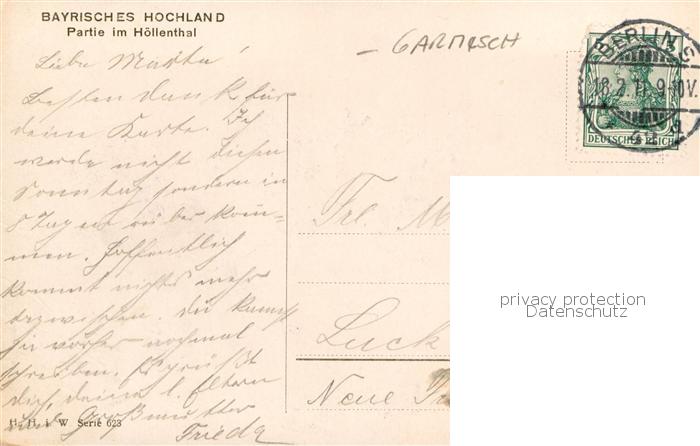 BAYRISCHES HOCHLAND
Partie im Höllenthal
- GARMISCH
BERLIN S
18.2.11. 9-10V.
DEUTSCHES REICH
Liebe Martha!
Besten Dank für
deine Karte. Ich
werde nicht diesen
Sonntag sondern in
8 Tagen rüber kom-
men. Hoffentlich
kommt nichts mehr
dazwischen. Du kannst
ja vorher nochmal
schreiben. Es grüßt
dich, deine l. Eltern
und Großmutter
Frieda
Frl. M
Luck
Neue
privacy protection
Datenschutz
H. H. i. W Serie 623